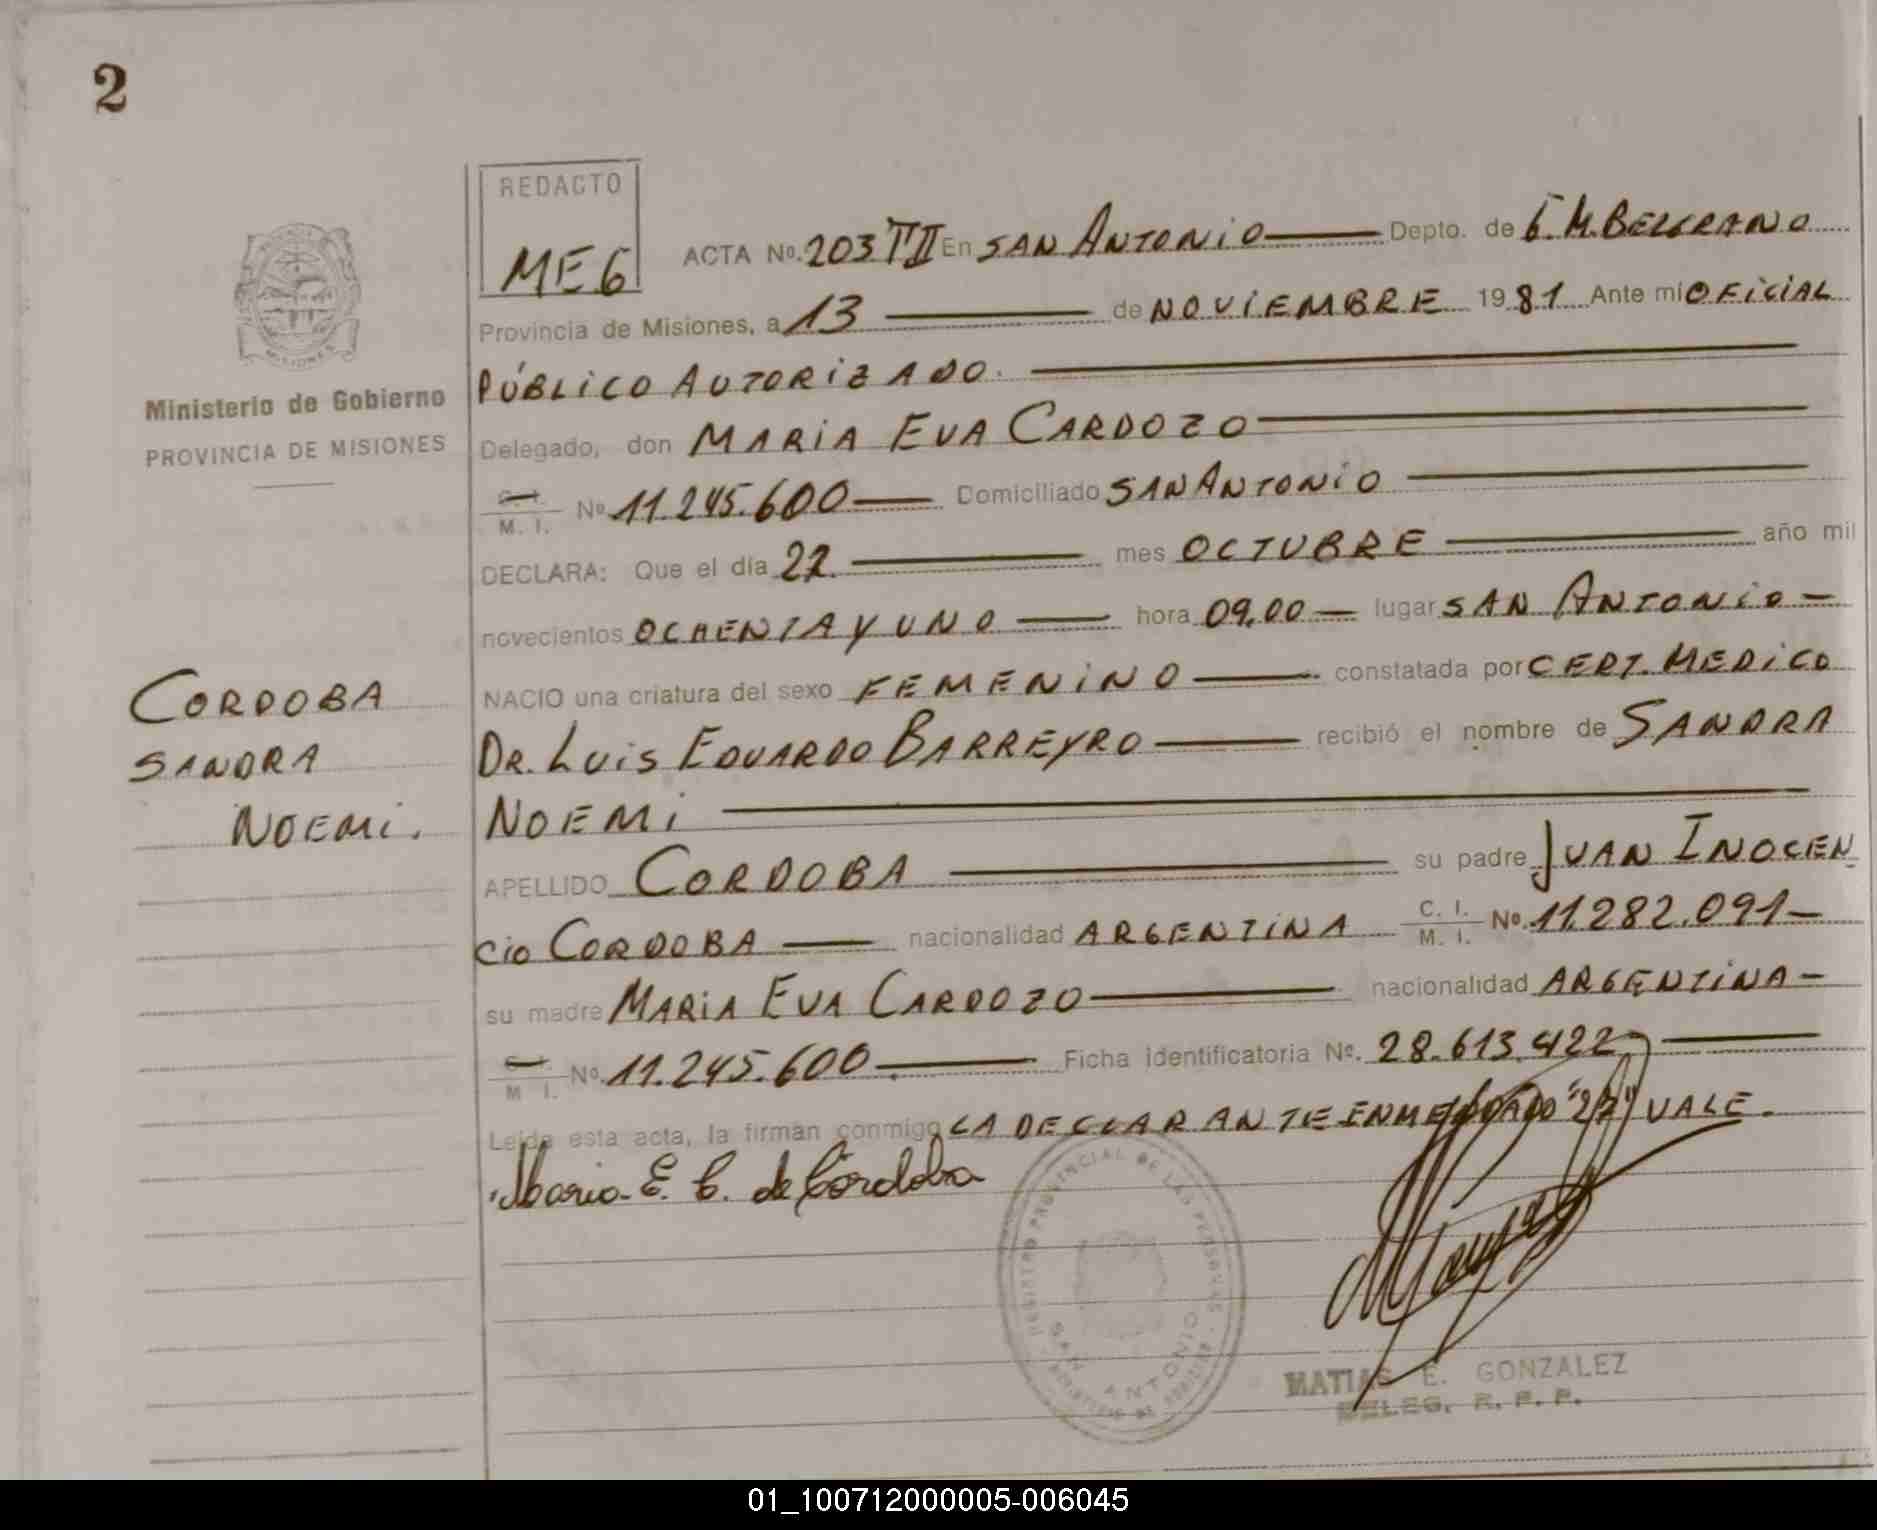 2
REDACTO
MEG
ACTA Nº. 203 TII En SAN ANTONIO Depto. de G. M. BELGRANO
Provincia de Misiones, a 13 de NOVIEMBRE 1981 Ante mi OFICIAL
PÚBLICO AUTORIZADO.
Delegado, don MARIA EVA CARDOZO
C. I.
M. I. Nº 11.245.600 Domiciliado SAN ANTONIO
DECLARA: Que el día 22 mes OCTUBRE año mil
novecientos OCHENTA Y UNO hora 09,00 lugar SAN ANTONIO
NACIO una criatura del sexo FEMENINO constatada por CERT. MEDICO
DR. LUIS EDUARDO BARREYRO recibió el nombre de SANDRA
NOEMI
APELLIDO CORDOBA su padre JUAN INOCEN
CIO CORDOBA nacionalidad ARGENTINA C. I.
M. I. Nº. 11.282.091
su madre MARIA EVA CARDOZO nacionalidad ARGENTINA
C. I.
M I. Nº. 11.245.600 Ficha identificatoria Nº. 28.613.422
Leída esta acta, la firman conmigo LA DECLARANTE ENMENDADO "22" VALE.
Maria E. C. de Cordoba
MISIONES
Ministerio de Gobierno
PROVINCIA DE MISIONES
CORDOBA
SANDRA
NOEMI.
REGISTRO PROVINCIAL DE LAS PERSONAS
SAN ANTONIO
MATIAS E. GONZALEZ
DELEG. R. P. P.
01_100712000005-006045